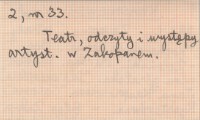 2, m 33.
Teatr, odczyty i występy
artyst. w Zakopanem.